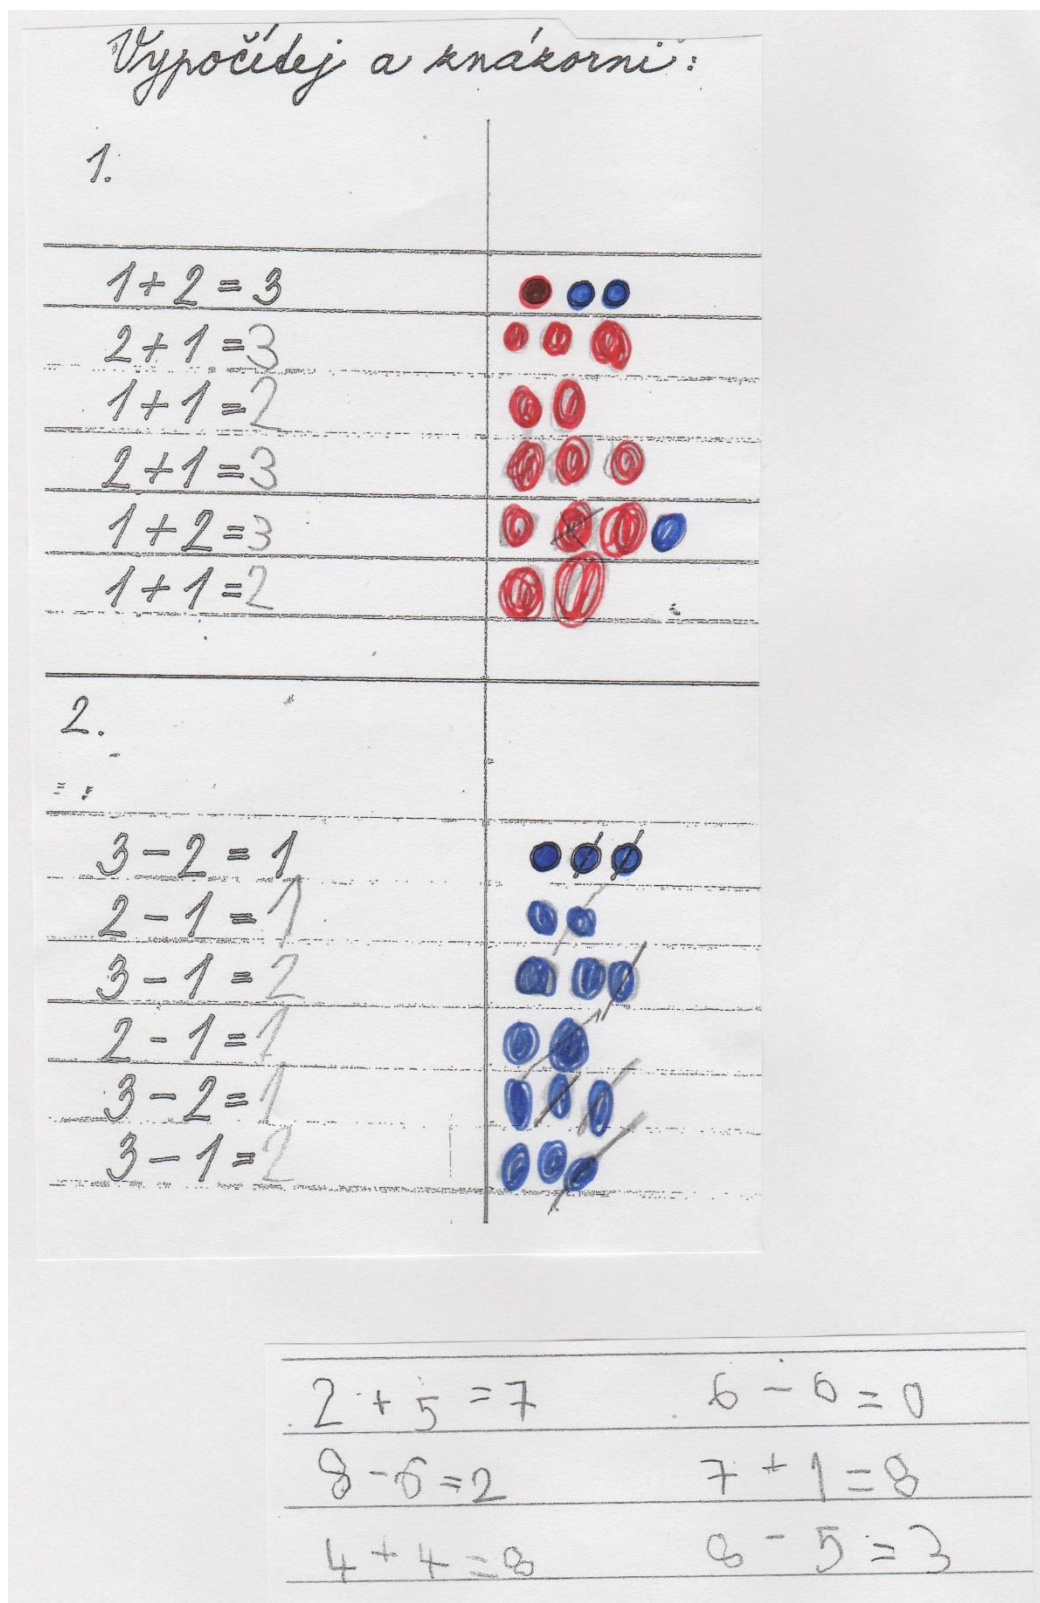 Vypočítej a znázorni:
1.
1 + 2 = 3
2 + 1 = 3
1 + 1 = 2
2 + 1 = 3
1 + 2 = 3
1 + 1 = 2
2.
3 - 2 = 1
2 - 1 = 1
3 - 1 = 2
2 - 1 = 1
3 - 2 = 1
3 - 1 = 2
2 + 5 = 7 6 - 6 = 0
8 - 6 = 2 7 + 1 = 8
4 + 4 = 8 8 - 5 = 3